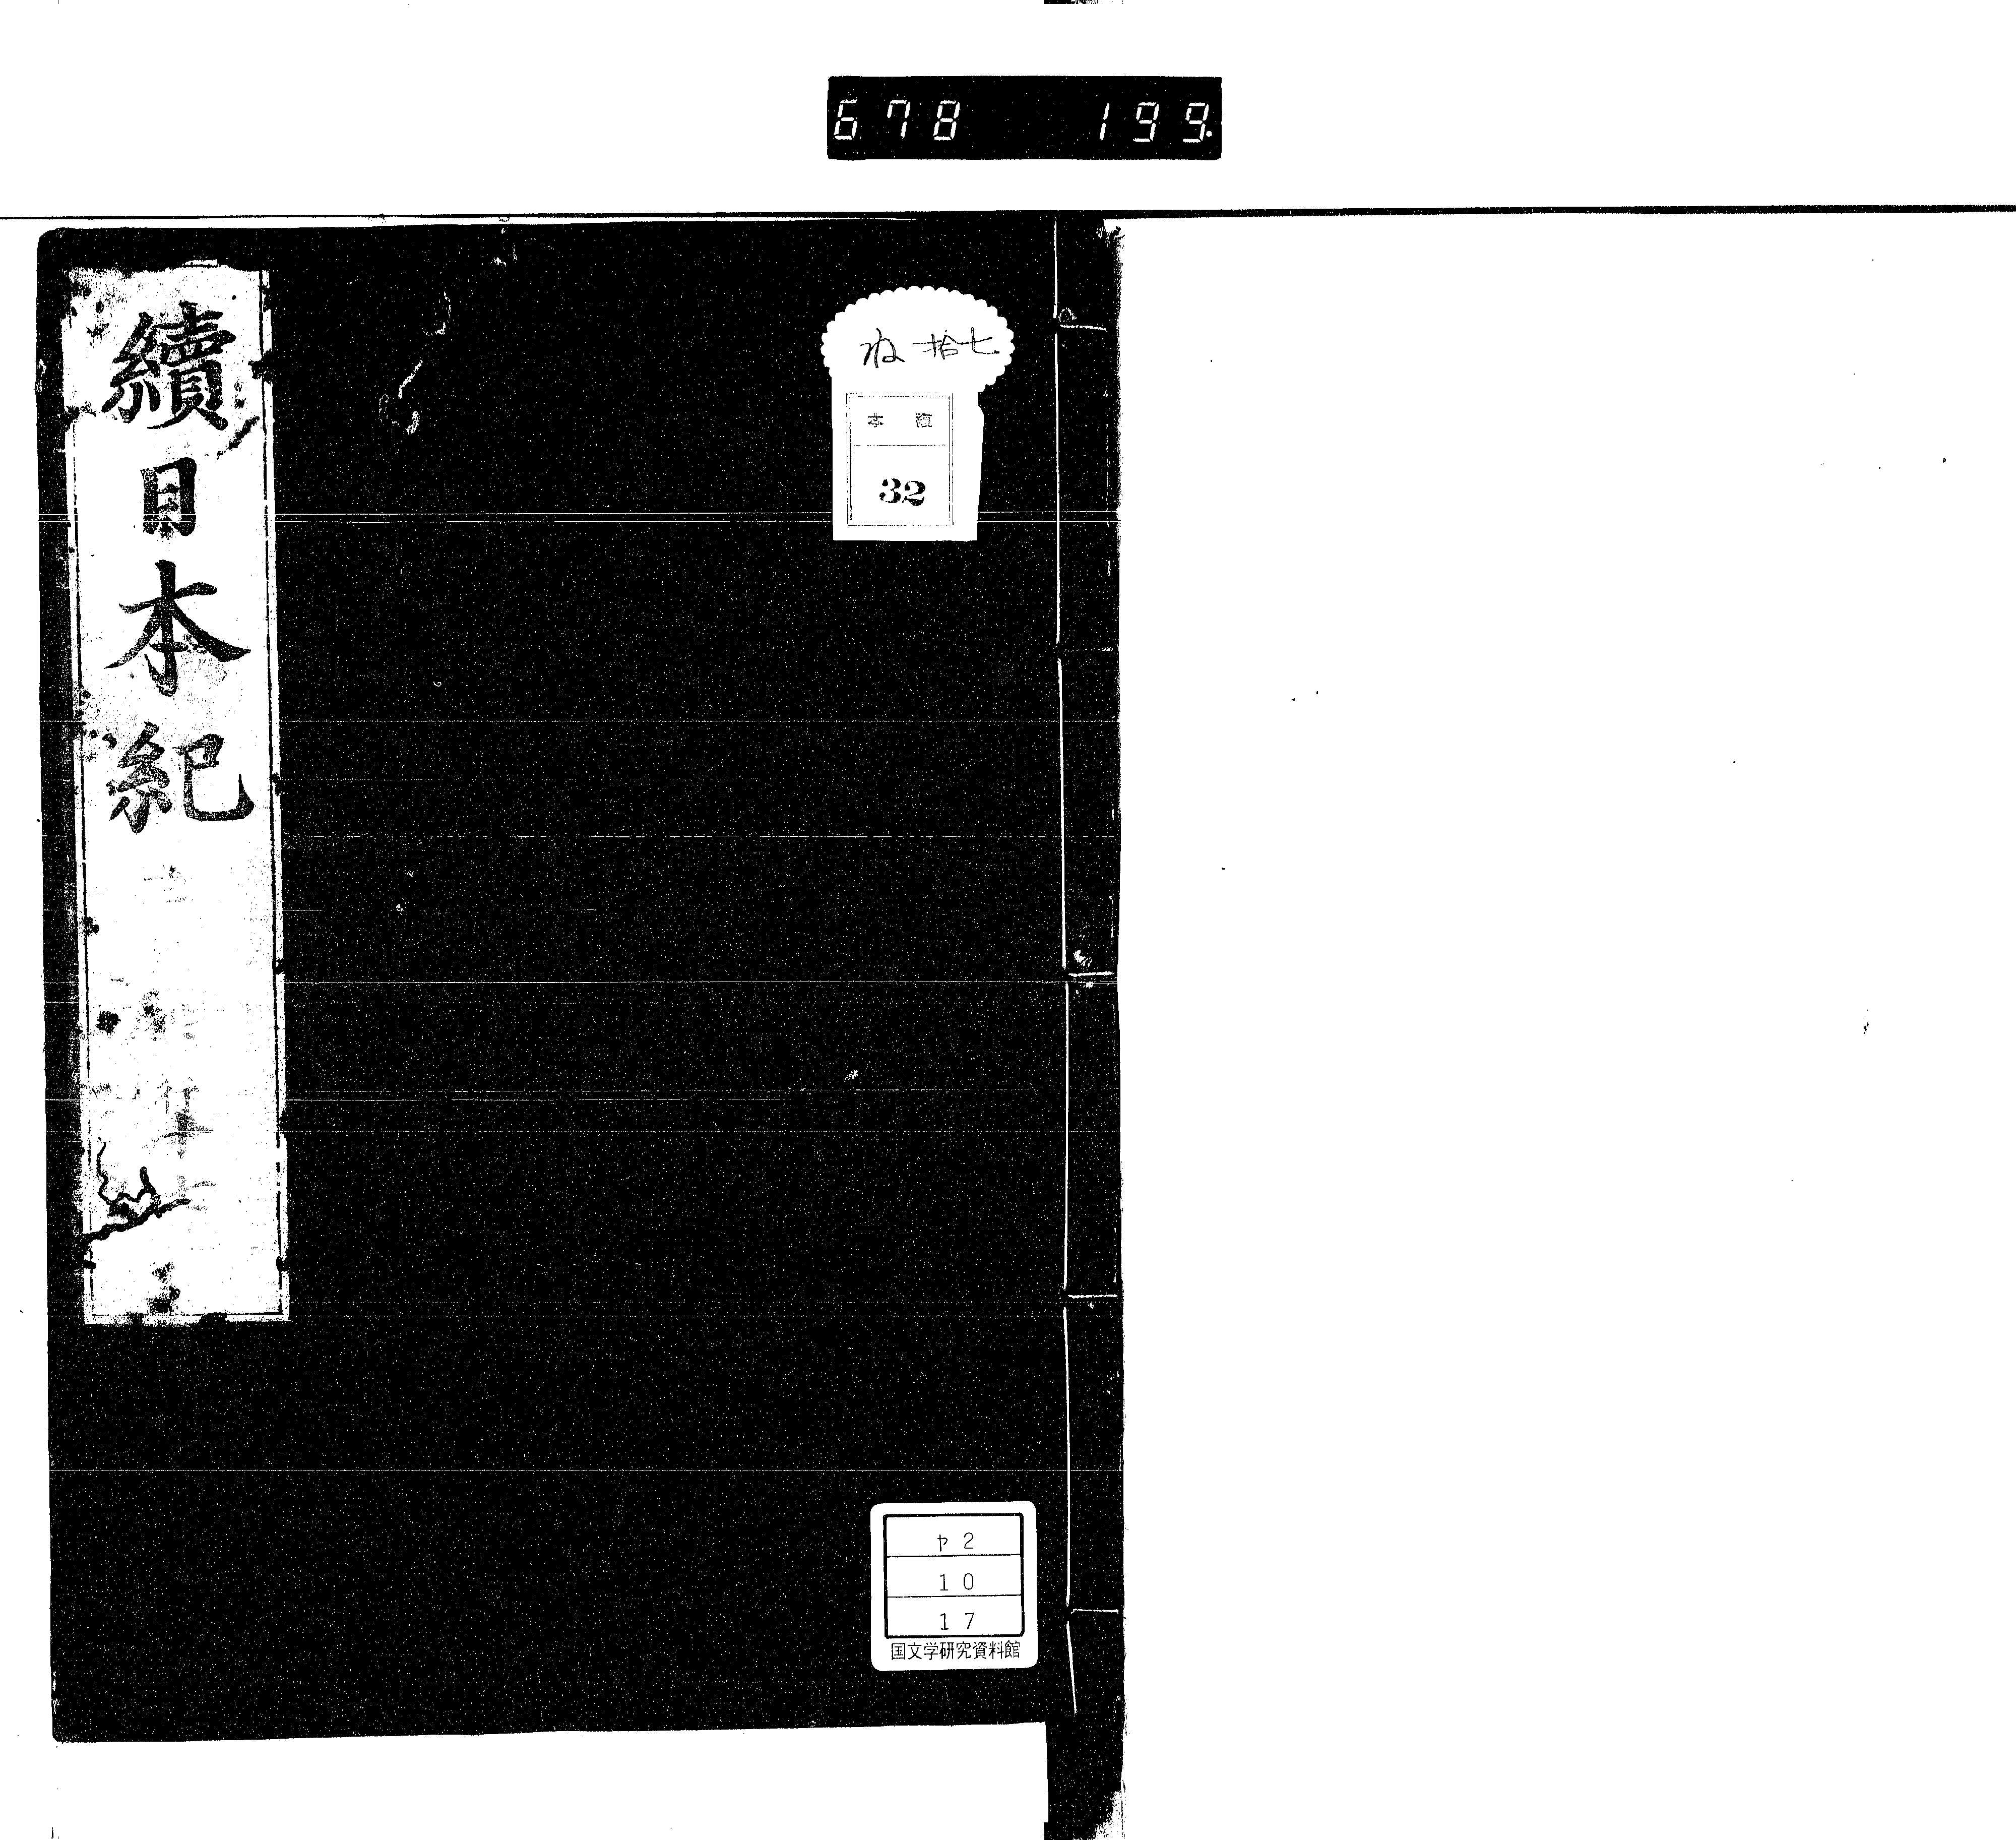 678 199.
ね拾七
本
32
續日本紀
ヤ2
10
17
国文学研究資料館